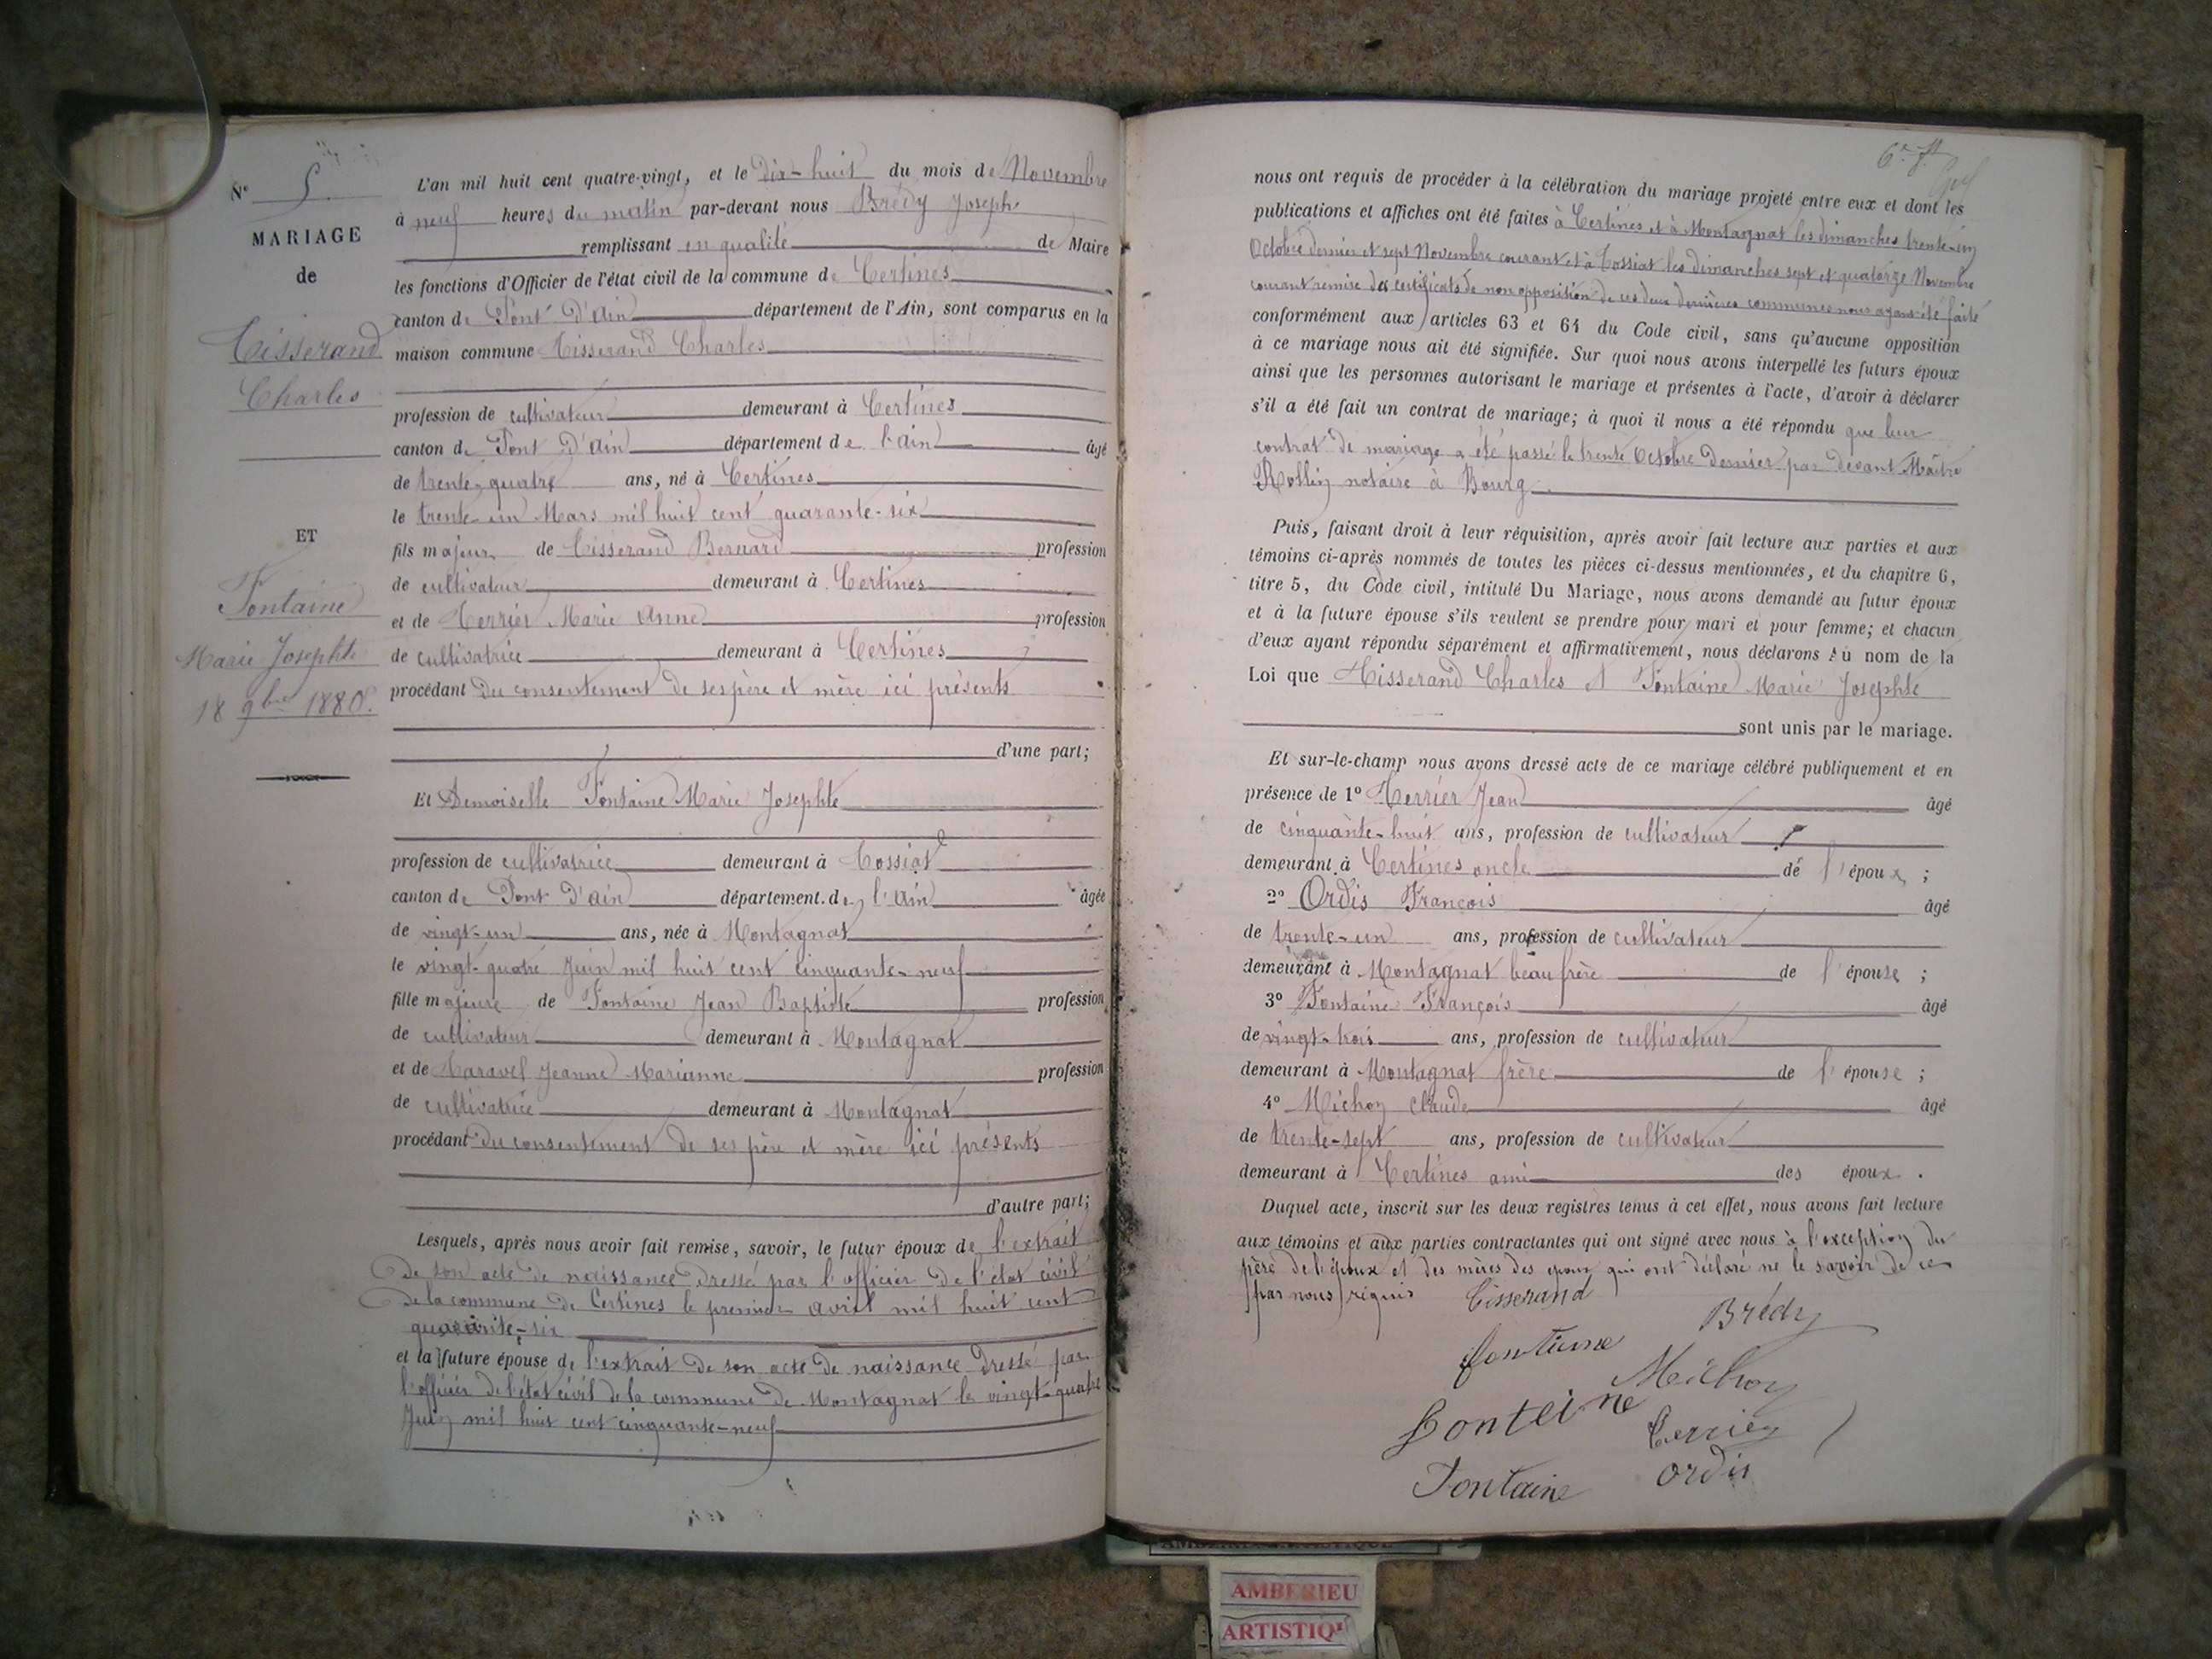 N° 5.
MARIAGE
de
Tisserand
Charles
ET
Fontaine
Marie Josephte
18 9bre 1880.
L'an mil huit cent quatre-vingt, et le Dix-huit du mois de Novembre
à neuf heures du matin par-devant nous Brédy Joseph
remplissant en qualité de Maire
les fonctions d'Officier de l'état civil de la commune de Certines
canton de Pont D'ain département de l'Ain, sont comparus en la
maison commune Tisserand Charles
profession de cultivateur demeurant à Certines
canton de Pont D'ain département de l'ain âgé
de trente-quatre ans, né à Certines
le trente-un Mars mil huit cent quarante-six
fils majeur de Tisserand Bernard profession
de cultivateur demeurant à Certines
et de Terrier Marie Anne profession
de cultivatrice demeurant à Certines
procédant du consentement de ses père et mère ici présents
d'une part;
Et Demoiselle Fontaine Marie Josephte
profession de cultivatrice demeurant à Tossiat
canton de Pont D'ain département de l'ain âgée
de vingt-un ans, née à Montagnat
le vingt-quatre Juin mil huit cent cinquante-neuf
fille majeure de Fontaine Jean Baptiste profession
de cultivateur demeurant à Montagnat
et de Maravel Jeanne Marianne profession
de cultivatrice demeurant à Montagnat
procédant du consentement de ses père et mère ici présents
d'autre part;
Lesquels, après nous avoir fait remise, savoir, le futur époux de l'extrait
de son acte de naissance dressé par l'officier de l'état civil
de la commune de Certines le premier avril mil huit cent
quarante-six
et la future épouse de l'extrait de son acte de naissance dressé par
l'officier de l'état civil de la commune de Montagnat le vingt-quatre
Juin mil huit cent cinquante-neuf
6e ft
nous ont requis de procéder à la célébration du mariage projeté entre eux et dont les
publications et affiches ont été faites à Certines et à Montagnat les dimanches trente-un
Octobre dernier et sept Novembre courant et à Tossiat les dimanches sept et quatorze Novembre
courant remise des certificats de non opposition de ces deux dernières communes nous ayant été faite
conformément aux articles 63 et 64 du Code civil, sans qu'aucune opposition
à ce mariage nous ait été signifiée. Sur quoi nous avons interpellé les futurs époux
ainsi que les personnes autorisant le mariage et présentes à l'acte, d'avoir à déclarer
s'il a été fait un contrat de mariage; à quoi il nous a été répondu que leur
contrat de mariage a été passé le trente Octobre dernier par devant Maître
Rollin notaire à Bourg
Puis, faisant droit à leur réquisition, après avoir fait lecture aux parties et aux
témoins ci-après nommés de toutes les pièces ci-dessus mentionnées, et du chapitre 6,
titre 5, du Code civil, intitulé Du Mariage, nous avons demandé au futur époux
et à la future épouse s'ils veulent se prendre pour mari et pour femme; et chacun
d'eux ayant répondu séparément et affirmativement, nous déclarons Au nom de la
Loi que Tisserand Charles et Fontaine Marie Josephte
sont unis par le mariage.
Et sur-le-champ nous avons dressé acte de ce mariage célébré publiquement et en
présence de 1° Terrier Jean âgé
de cinquante-huit ans, profession de cultivateur
demeurant à Certines oncle de l'époux ;
2° Ordis François âgé
de trente-un ans, profession de cultivateur
demeurant à Montagnat beau frère de l'épouse ;
3° Fontaine François âgé
de vingt-trois ans, profession de cultivateur
demeurant à Montagnat frère de l'épouse ;
4° Michon Claude âgé
de trente-sept ans, profession de cultivateur
demeurant à Certines ami des époux.
Duquel acte, inscrit sur les deux registres tenus à cet effet, nous avons fait lecture
aux témoins et aux parties contractantes qui ont signé avec nous à l'exception du
père de l'époux et des mères des époux qui ont déclaré ne le savoir de ce
par nous requis
Tisserand
Brédy
fontaine
Michon
Fonteine
Terrier
Fontaine
Ordis
AMBERIEU
ARTISTIQ